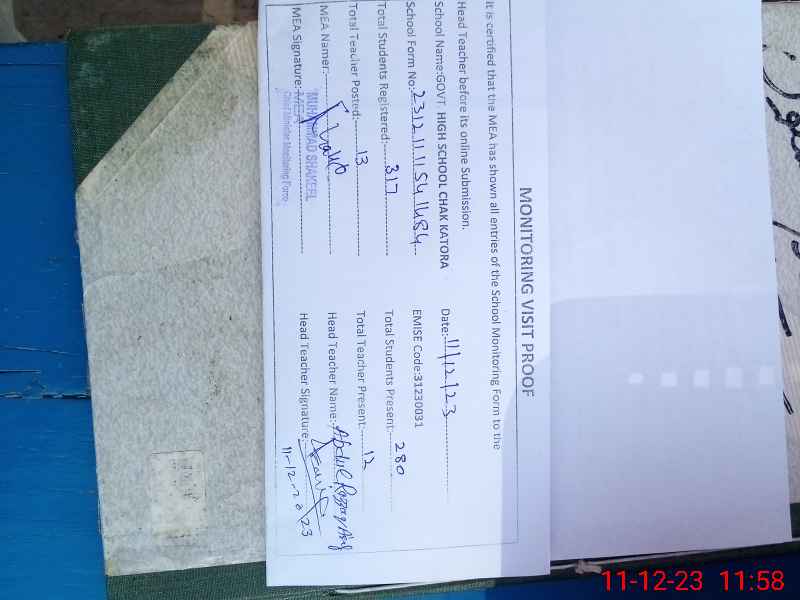 MONITORING VISIT PROOF
It is certified that the MEA has shown all entries of the School Monitoring Form to the
Head Teacher before its online Submission.
School Name:GOVT. HIGH SCHOOL CHAK KATORA Date:11/12/23
School Form No: 2312111541484 EMISE Code:31230031
Total Students Registered: 317 Total Students Present: 280
Total Teacher Posted: 13 Total Teacher Present: 12
MEA Name: Head Teacher Name: Abdul Razzaq
MEA Signature: MEA Head Teacher Signature:
MUHAMMAD SHAKEEL
Chief Minister Monitoring Force
11-12-2023
11-12-23 11:58